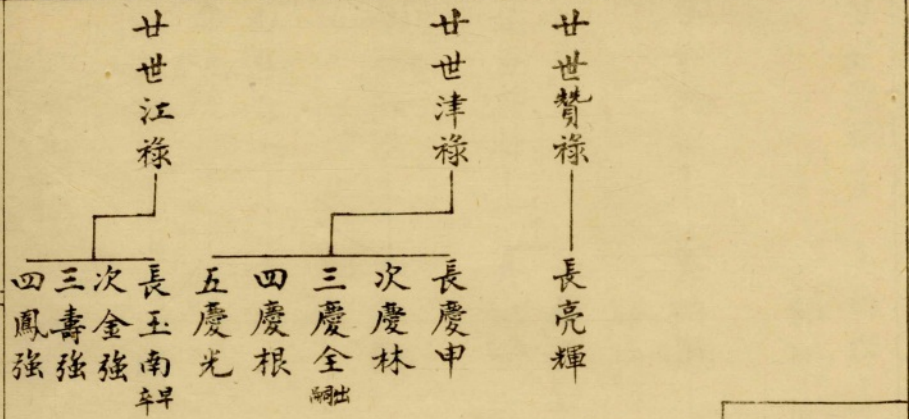 廿世贊祿
長亮輝
廿世津祿
長慶申
次慶林
三慶全出嗣
四慶根
五慶光
廿世江祿
長玉南早卒
次金強
三壽強
四鳳強